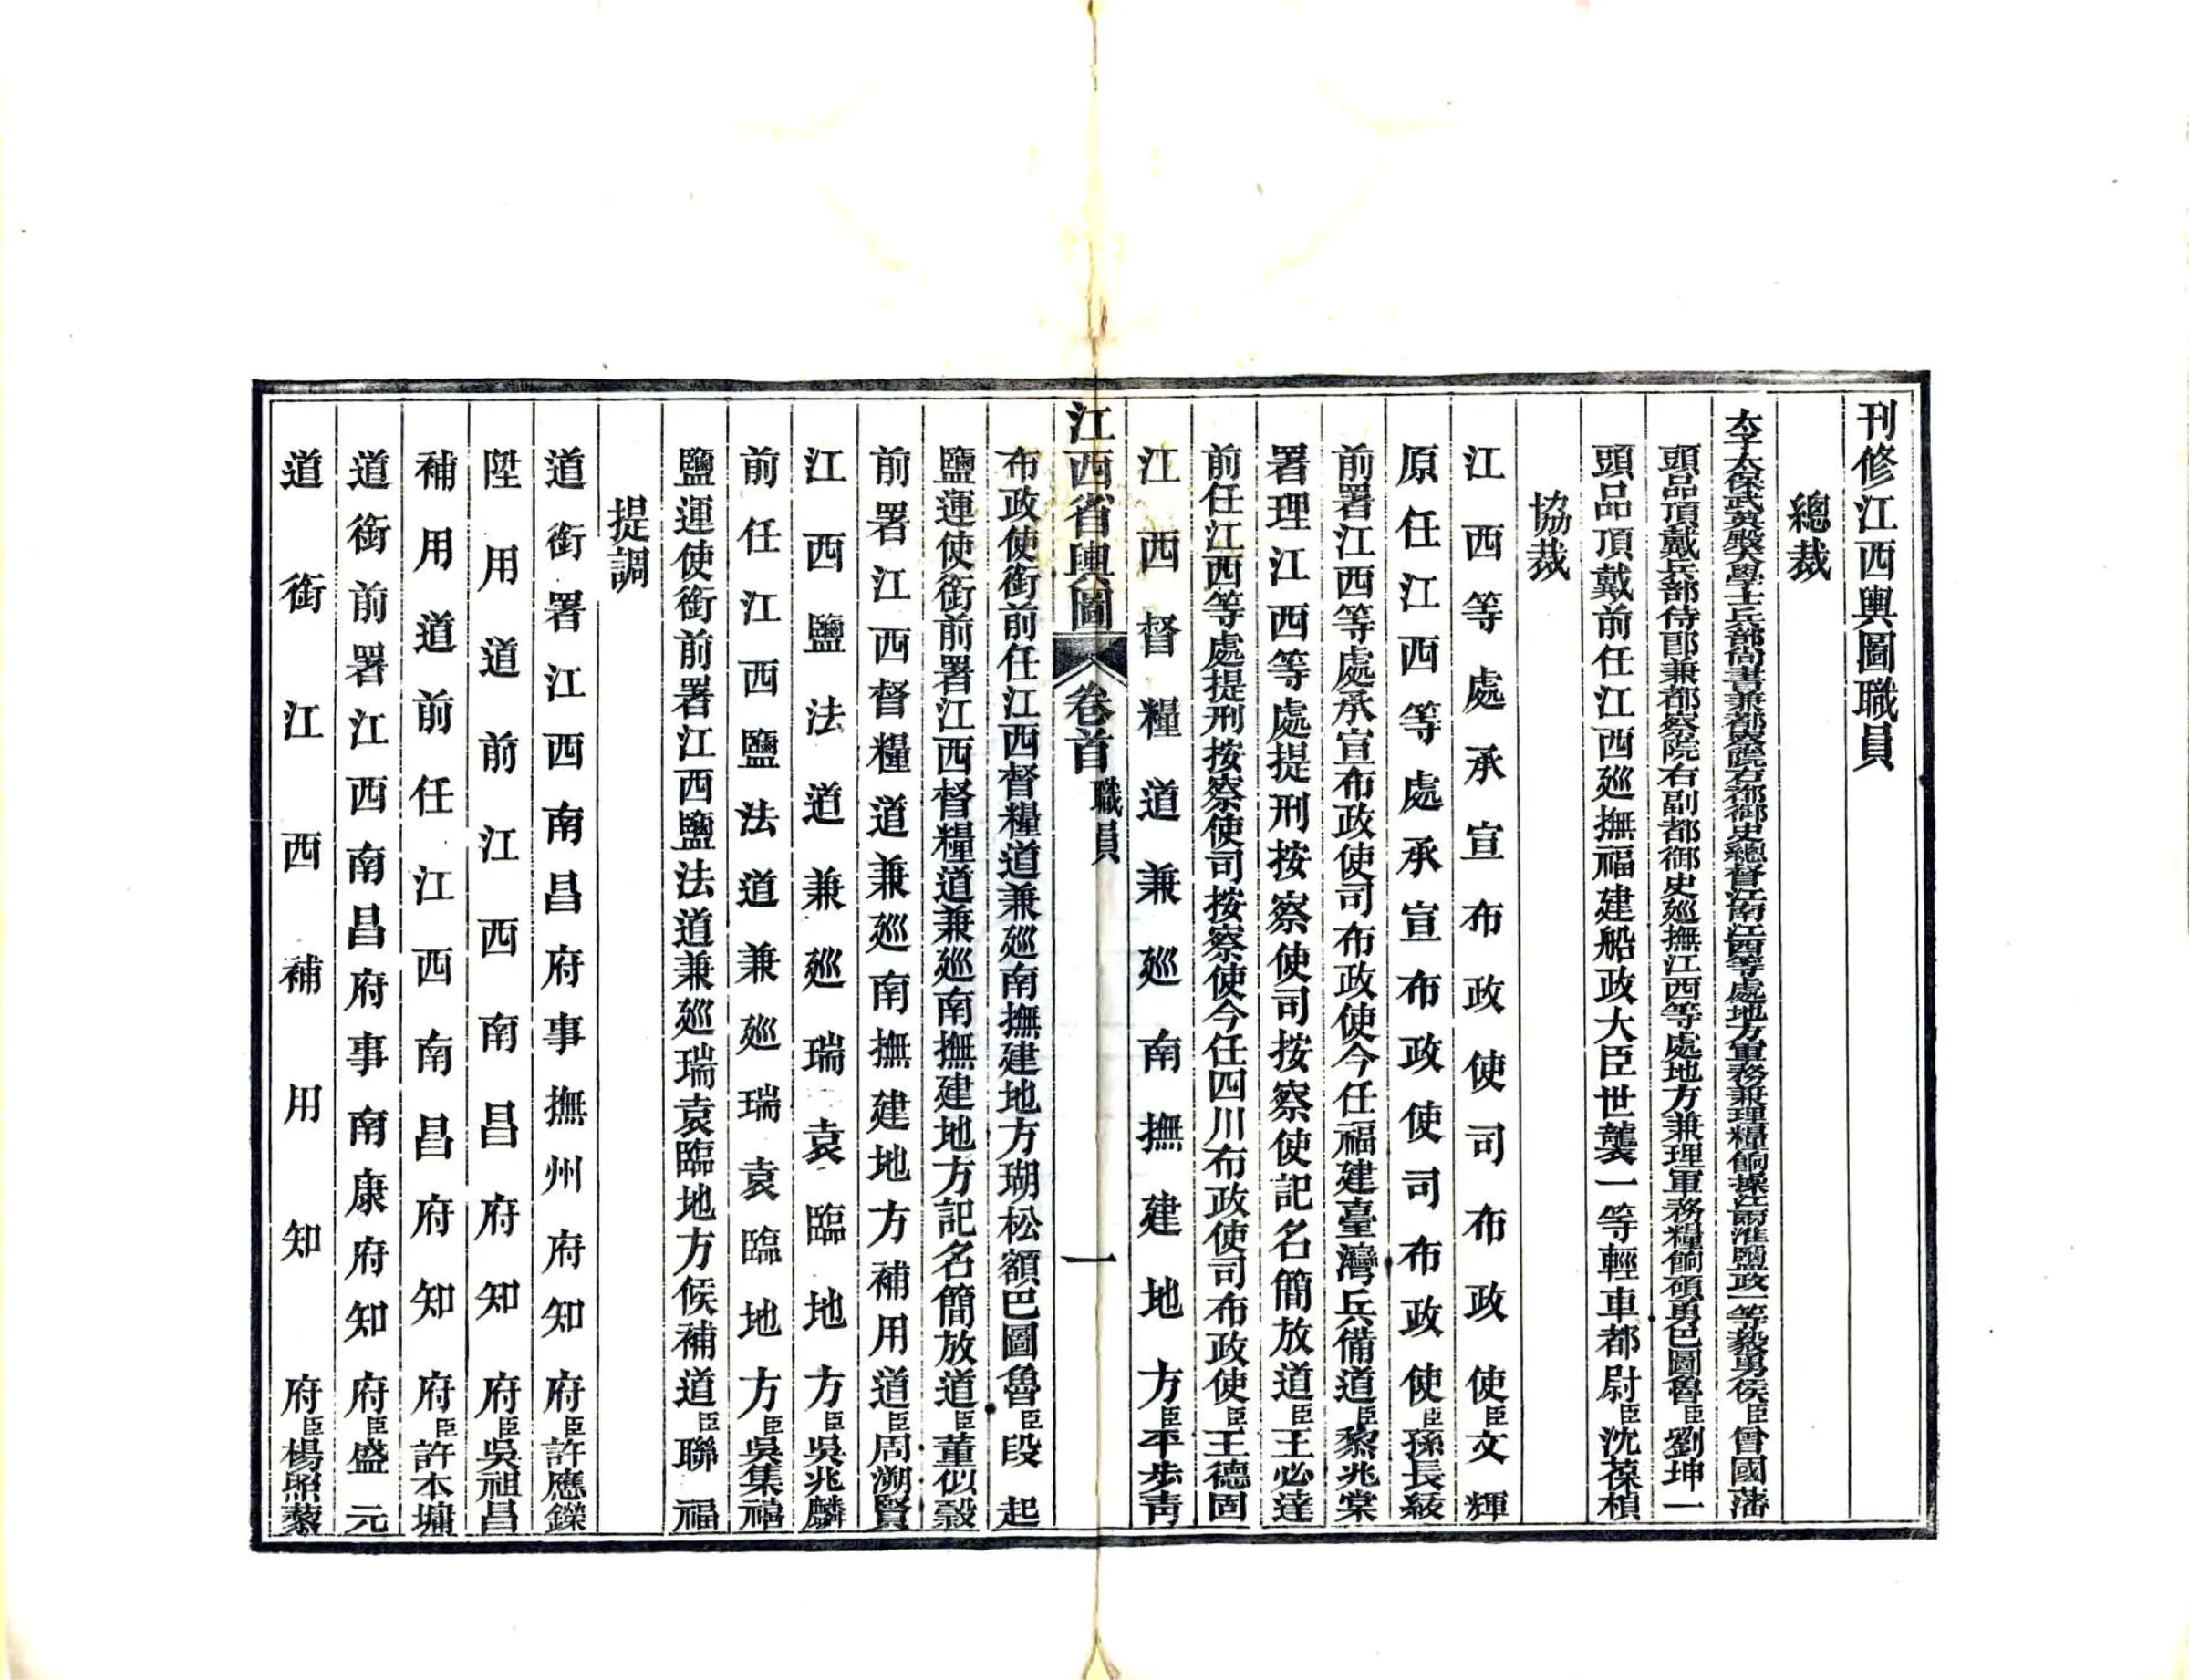 刊修江西輿圖職員
總裁
太子太保武英殿大學士兵部尚書兼都察院右都御史總督江南江西等處地方軍務兼理糧餉操江兩淮鹽政一等毅勇侯臣曾國藩
頭品頂戴兵部侍郎兼都察院右副都御史廵撫江西等處地方兼理軍務糧餉碩勇巴圖魯臣劉坤一
頭品頂戴前任江西廵撫福建船政大臣世襲一等輕車都尉臣沈葆楨
協裁
江西等處承宣布政使司布政使臣文輝
原任江西等處承宣布政使司布政使臣孫長紱
前署江西等處承宣布政使司布政使今任福建臺灣兵備道臣黎兆棠
署理江西等處提刑按察使司按察使記名簡放道臣王必達
前任江西等處提刑按察使司按察使今任四川布政使司布政使臣王德固
江西督糧道兼廵南撫建地方臣李步青
江西省輿圖 卷首 職員 一
布政使銜前任江西督糧道兼廵南撫建地方瑚松額巴圖魯臣段起
鹽運使銜前署江西督糧道兼廵南撫建地方記名簡放道臣董似穀
前署江西督糧道兼廵南撫建地方補用道臣周溯賢
江西鹽法道兼廵瑞袁臨地方臣吳兆麟
前任江西鹽法道兼廵瑞袁臨地方臣吳集禧
鹽運使銜前署江西鹽法道兼廵瑞袁臨地方候補道臣聯福
提調
道銜署江西南昌府事撫州府知府臣許應鑅
陞用道前江西南昌府知府臣吳祖昌
補用道前任江西南昌府知府臣許本墉
道銜前署江西南昌府事南康府知府臣盛元
道銜江西補用知府臣楊照藜